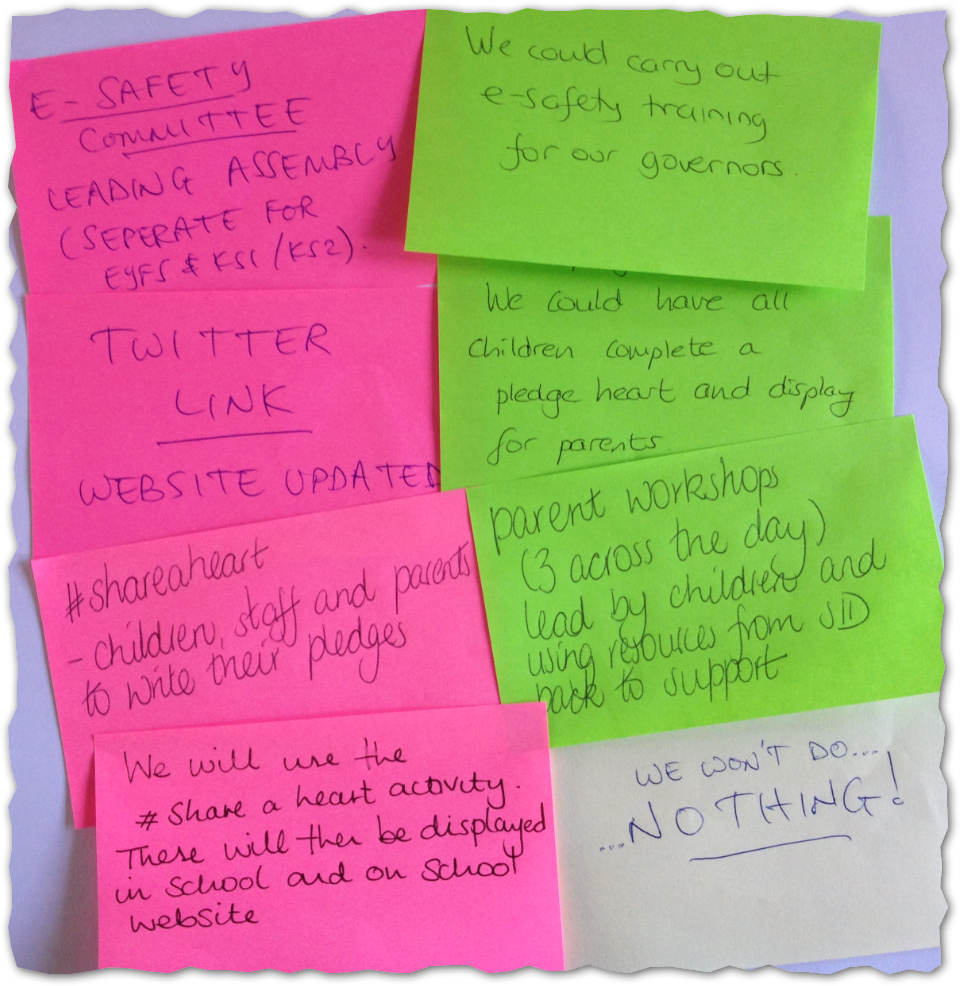 E-SAFETY
COMMITTEE
LEADING ASSEMBLY
(SEPERATE FOR
EYFS & KS1/KS2).
TWITTER
LINK
WEBSITE UPDATED
#shareaheart
- children, staff and parents
to write their pledges
We will use the
# Share a heart activity.
These will then be displayed
in school and on school
website
We could carry out
e-safety training
for our governors.
We could have all
children complete a
pledge heart and display
for parents.
parent workshops
(3 across the day)
lead by children and
using resources from SID
pack to support
WE WON'T DO...
...NOTHING!